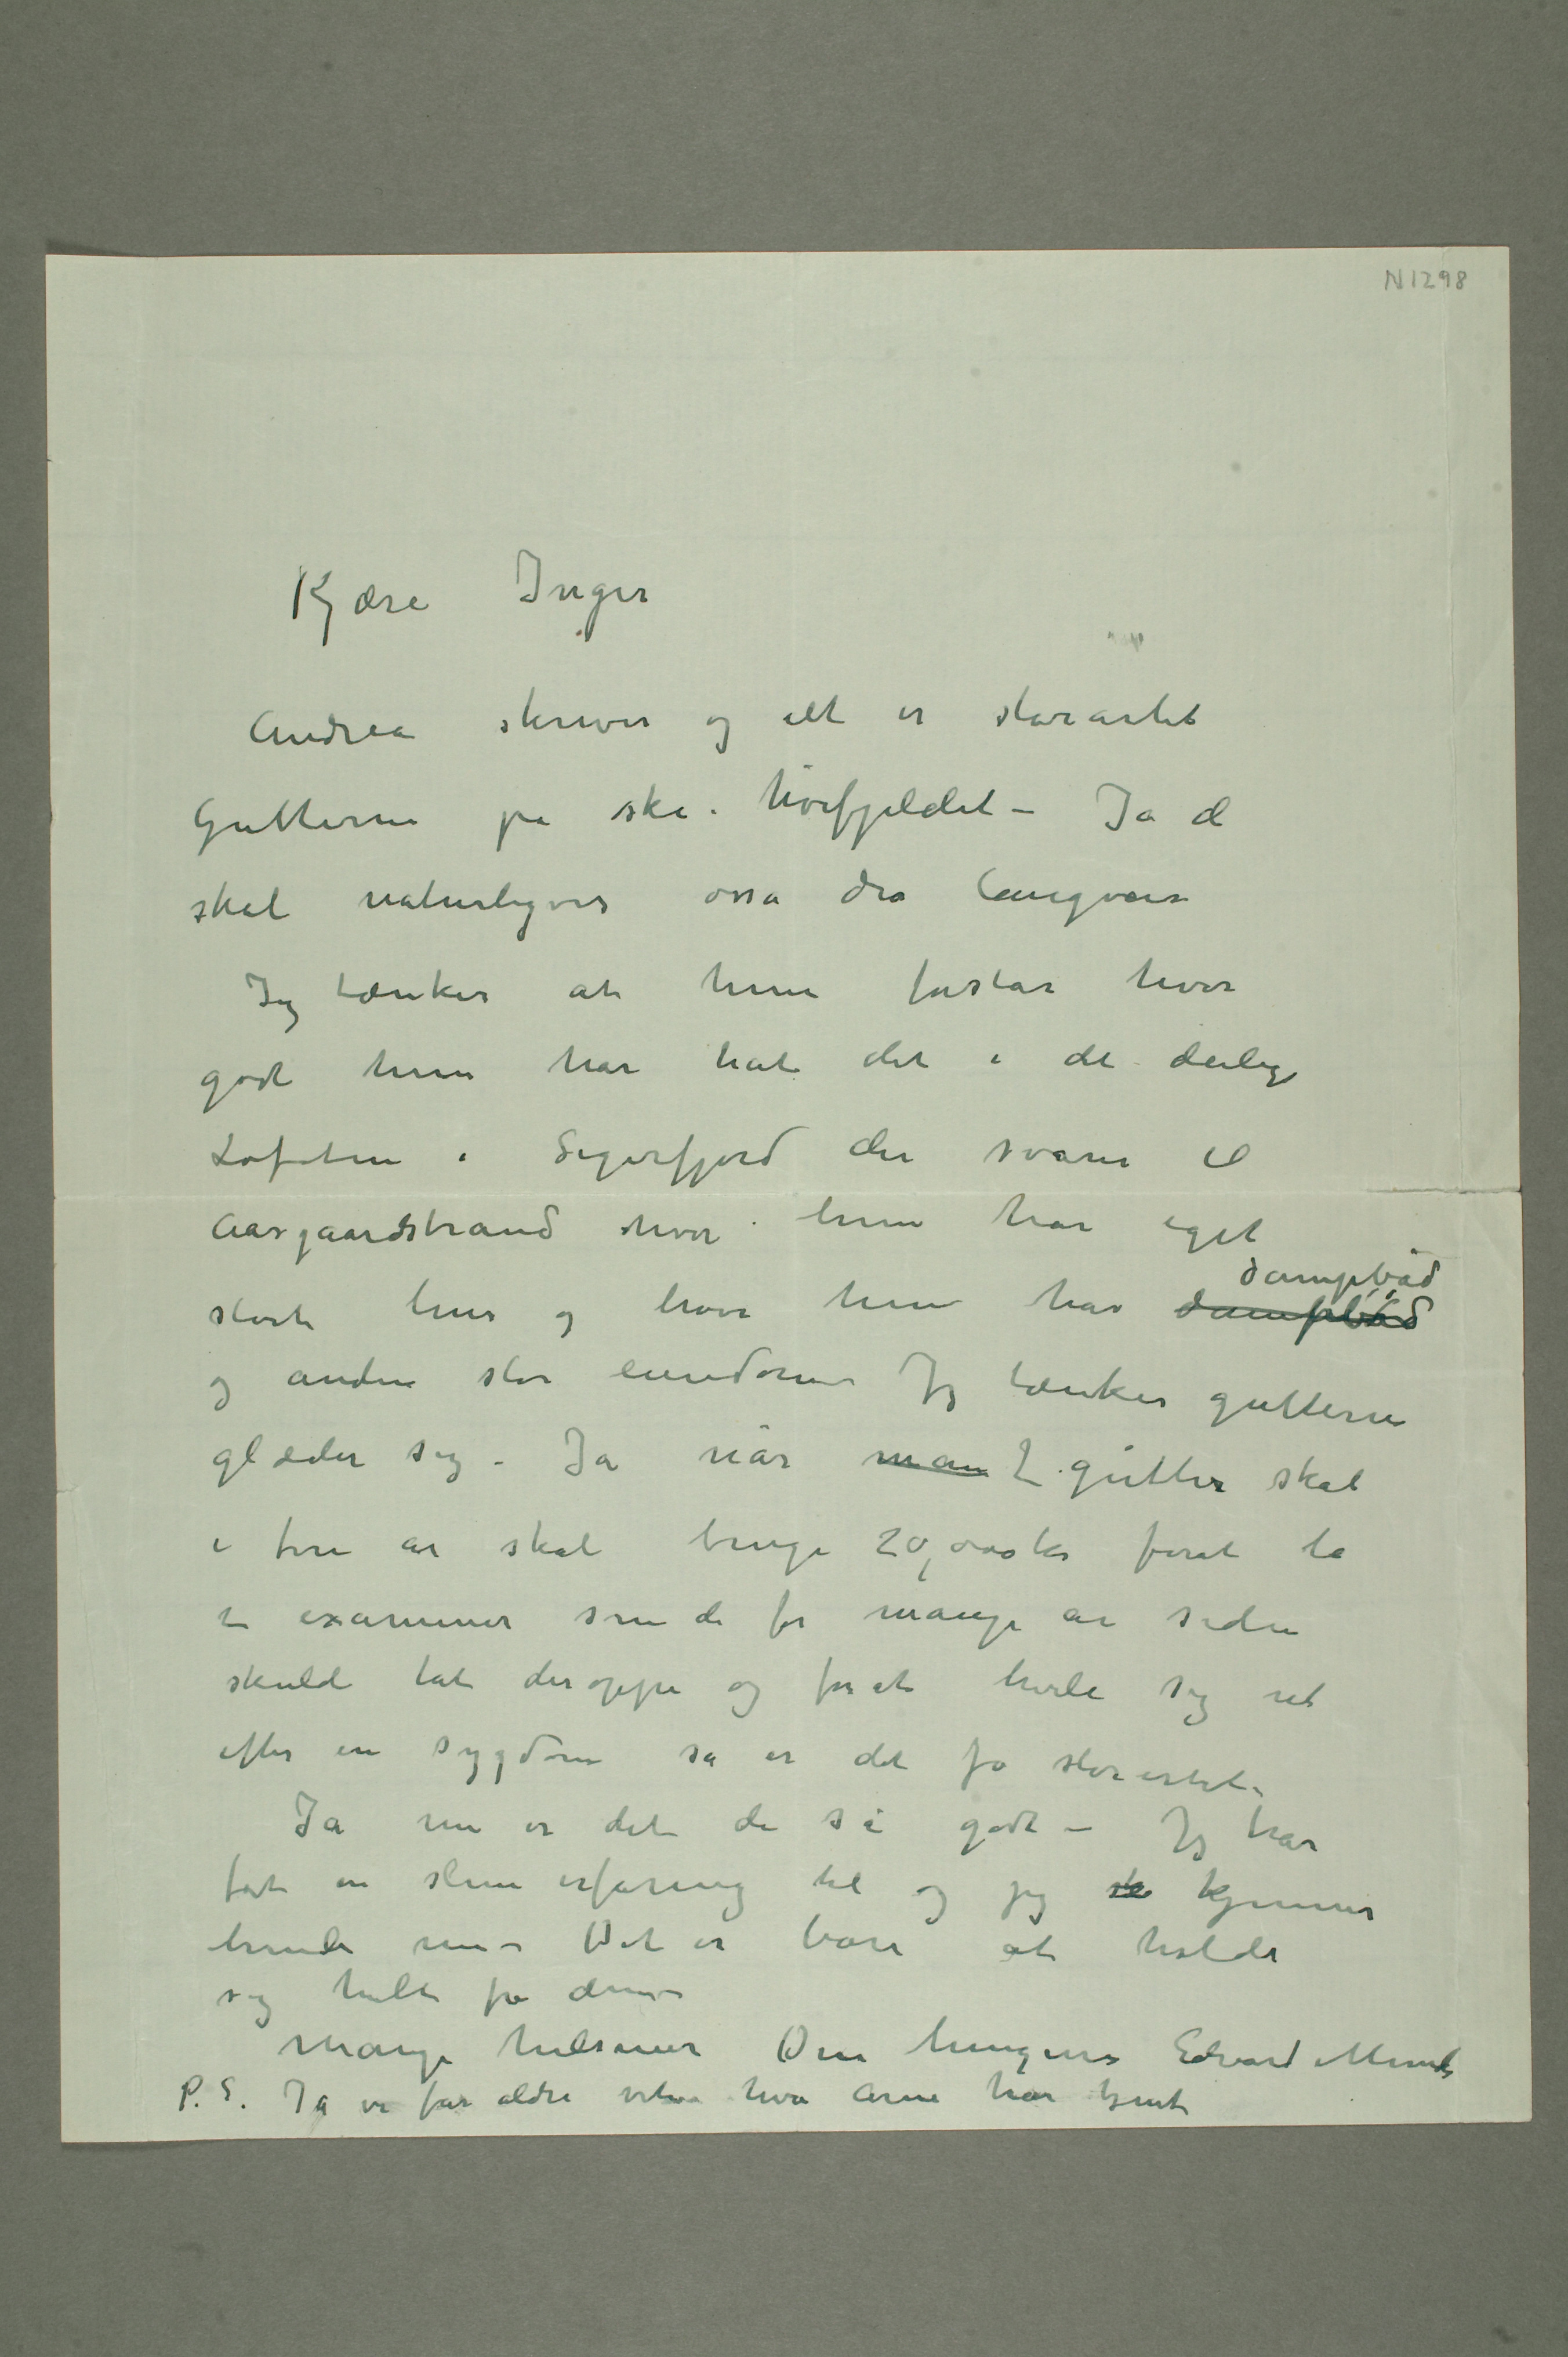 N1298
Kjære Inger
Andrea skriver og alt er storartet
Gutterne på ski i höifjeldet – Ja de
skal naturligvis osså dra langveis
Jeg tænker at hun forstår hvor
godt hun har hat det i det deilige
Lofoten i Sigerfjord der svarer til
Aasgaardstrand hvor hun har eget
stort hus og hvor hun har dampbåd dampbåd
og anden stor eiendom Jeg tænker gutterne
glæder sig – Ja når man 2 gutter skal
i fire år skal bruge 20,000 kr forat ta
en examener som de for mange år siden
skulde tat deroppe og for at hvile sig ut
efter en sygdom så er det jo storartet –
Ja nu er det da så godt – Jeg har
fåt en slem erfaring til og jeg kjenner
hende nu – Det er bare at holde
sig helt fra dem –
Mange hilsener Din hengivne Edvard Munch
P. S. Ja vi får aldri vite hva Arne har tjent